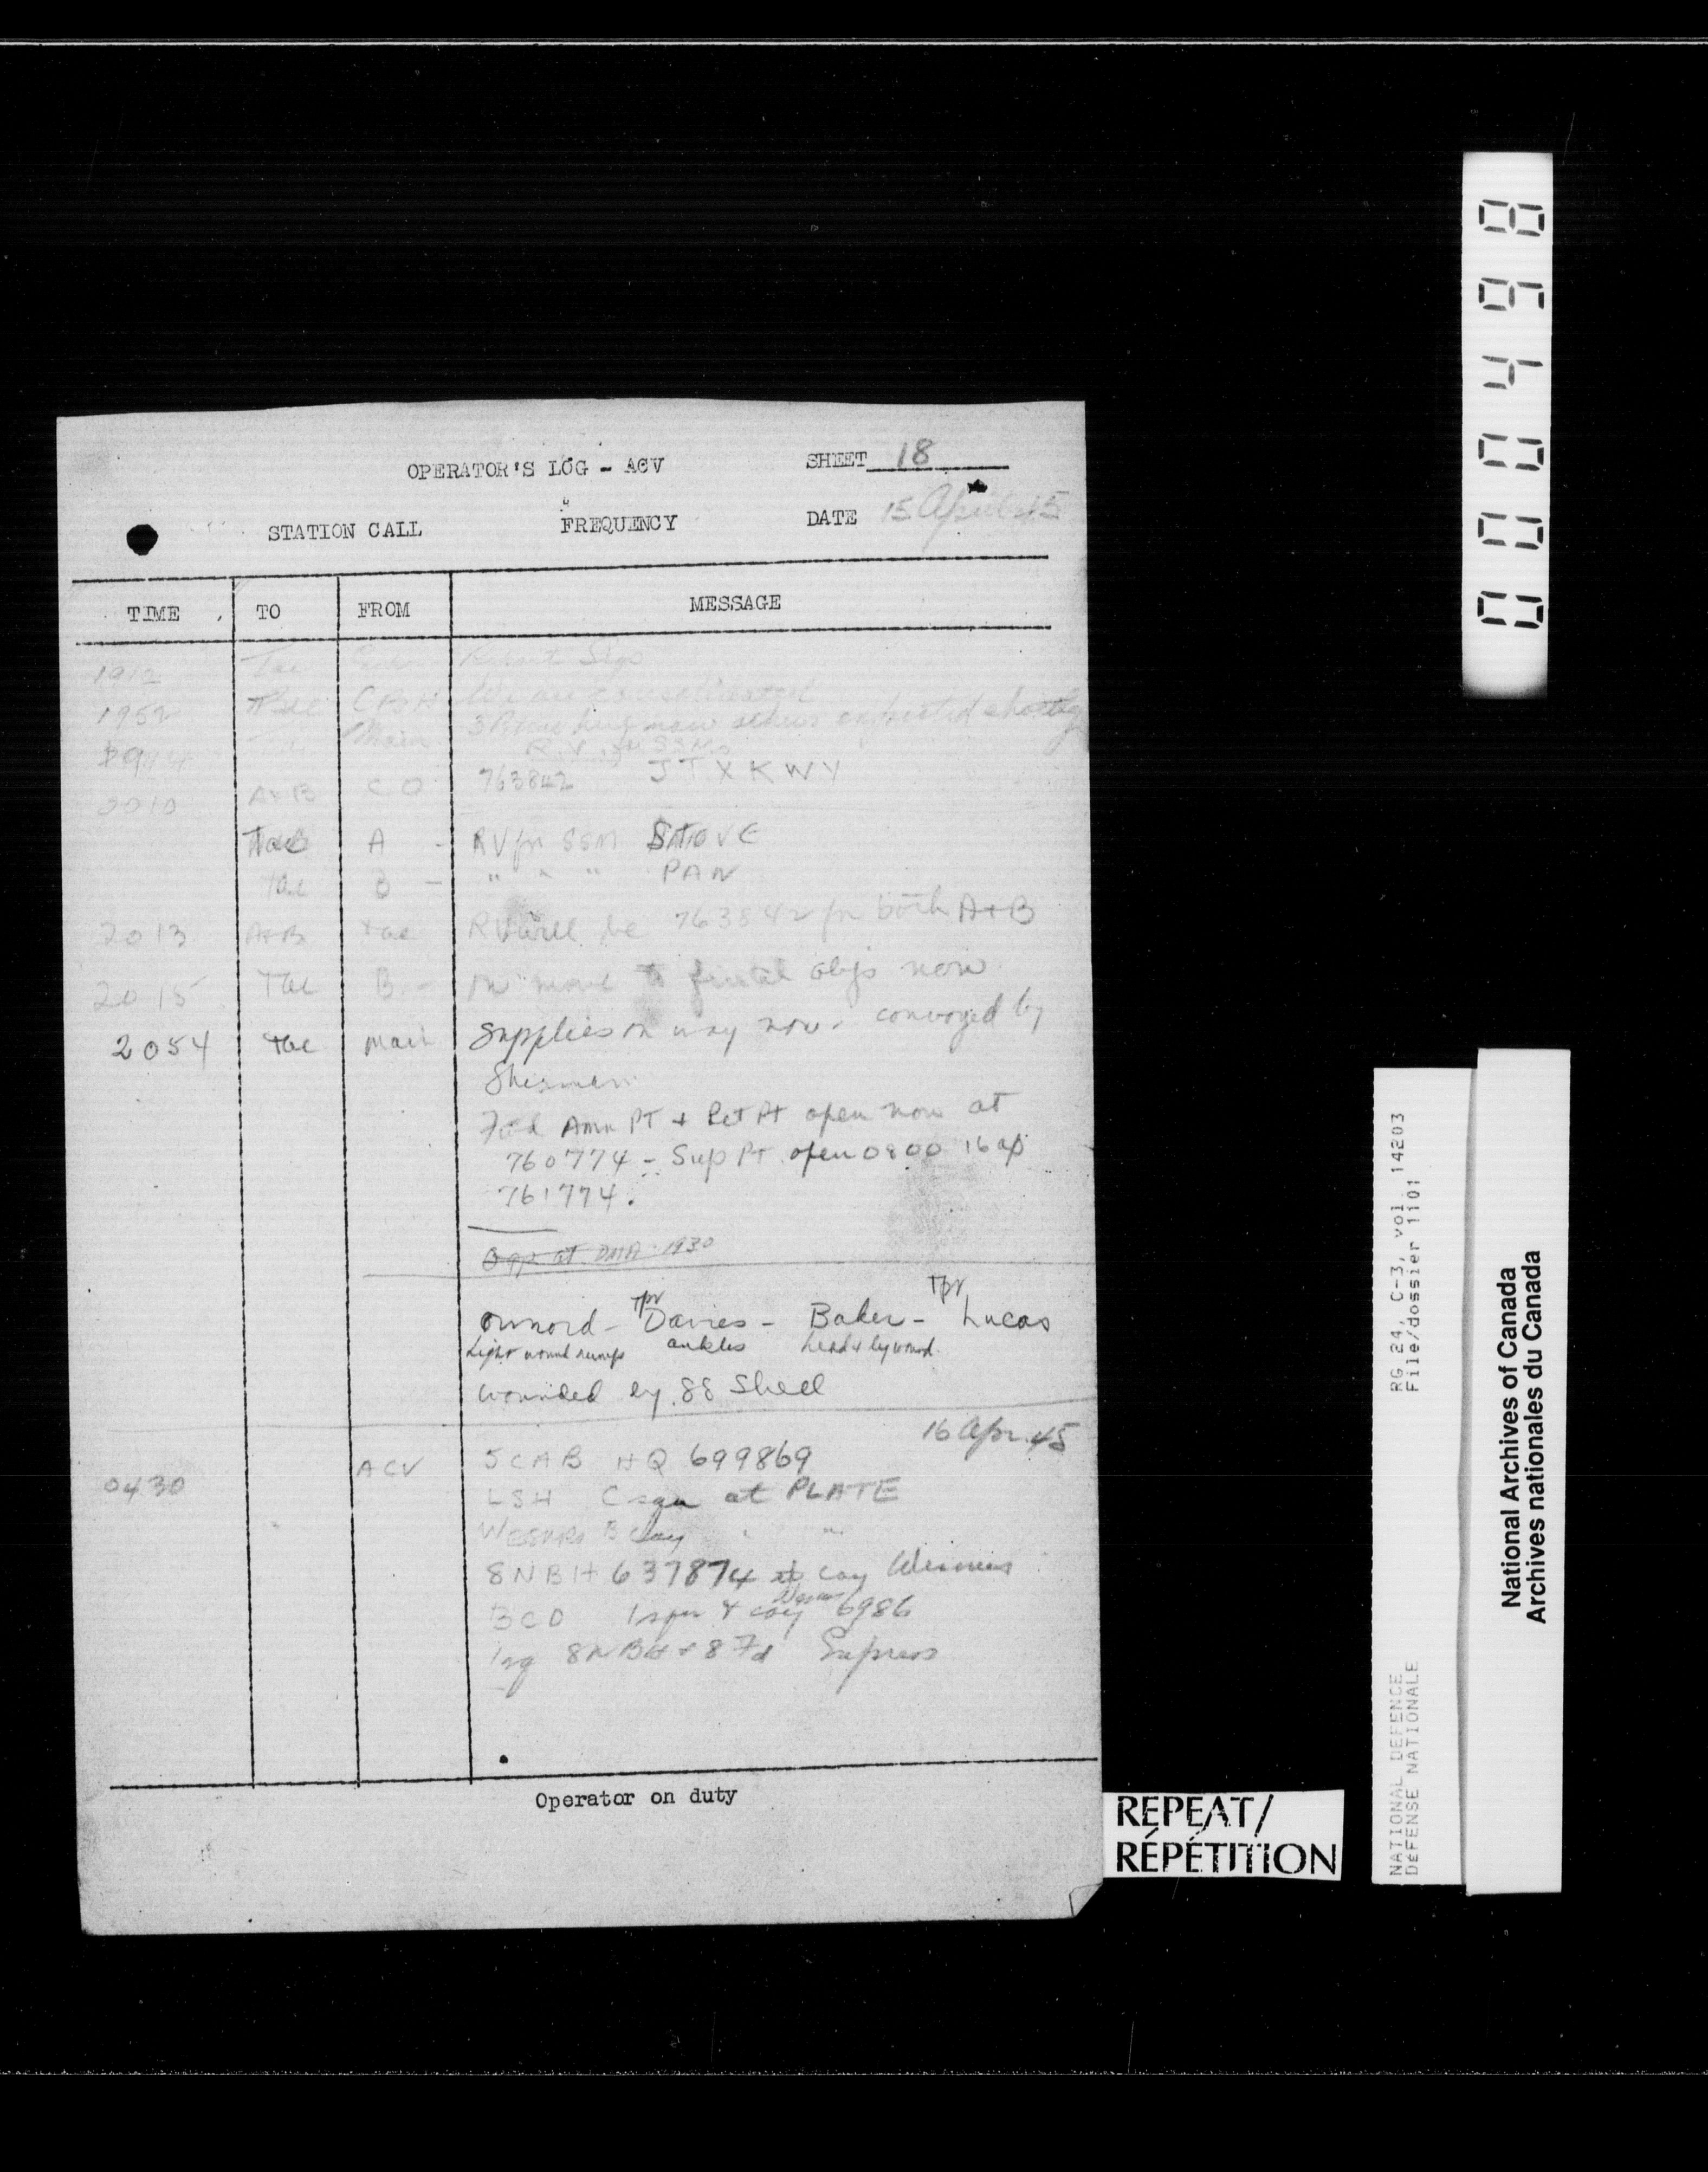 OPERATOR'S LOG - ACV SHEET 18
STATION CALL FREQUENCY DATE 15 April 45
TIME TO FROM MESSAGE
1912 Tac
1952 CBH We are consolidated
Main 3 now others expected shortly
R.V. SSMs
2010 A+B CO 763842 JTXKWY
Tac A - RV for SSM STOVE
Tac B - " " " PAN
2013 A+B Tac RV will be 763842 for both A+B
2015 Tac B - on move to final objs now
2054 Tac Main Supplies on way now. convoyed by
Sherman
Fwd Amn PT + Pet Pt open now at
760774 - Sup Pt. open 0800 16 ap
761774.
at 1930
Tpr Tpr
Ormord - Davies - Baker - Lucas
Light wound ankles head & leg wound
wounded by 88 Shell
16 Apr. 45
0430 ACV 5 CAB HQ 699869
LSH C sqn at PLATE
B Coy " "
8 NBH 637874 coy
BCD 1 sqn & coy 6986
8 NBH + 8 Fd
Operator on duty
REPEAT/
RÉPÉTITION
000498
RG 24, C-3, vol. 14203
File/dossier 1101
NATIONAL DEFENCE
DÉFENSE NATIONALE
National Archives of Canada
Archives nationales du Canada